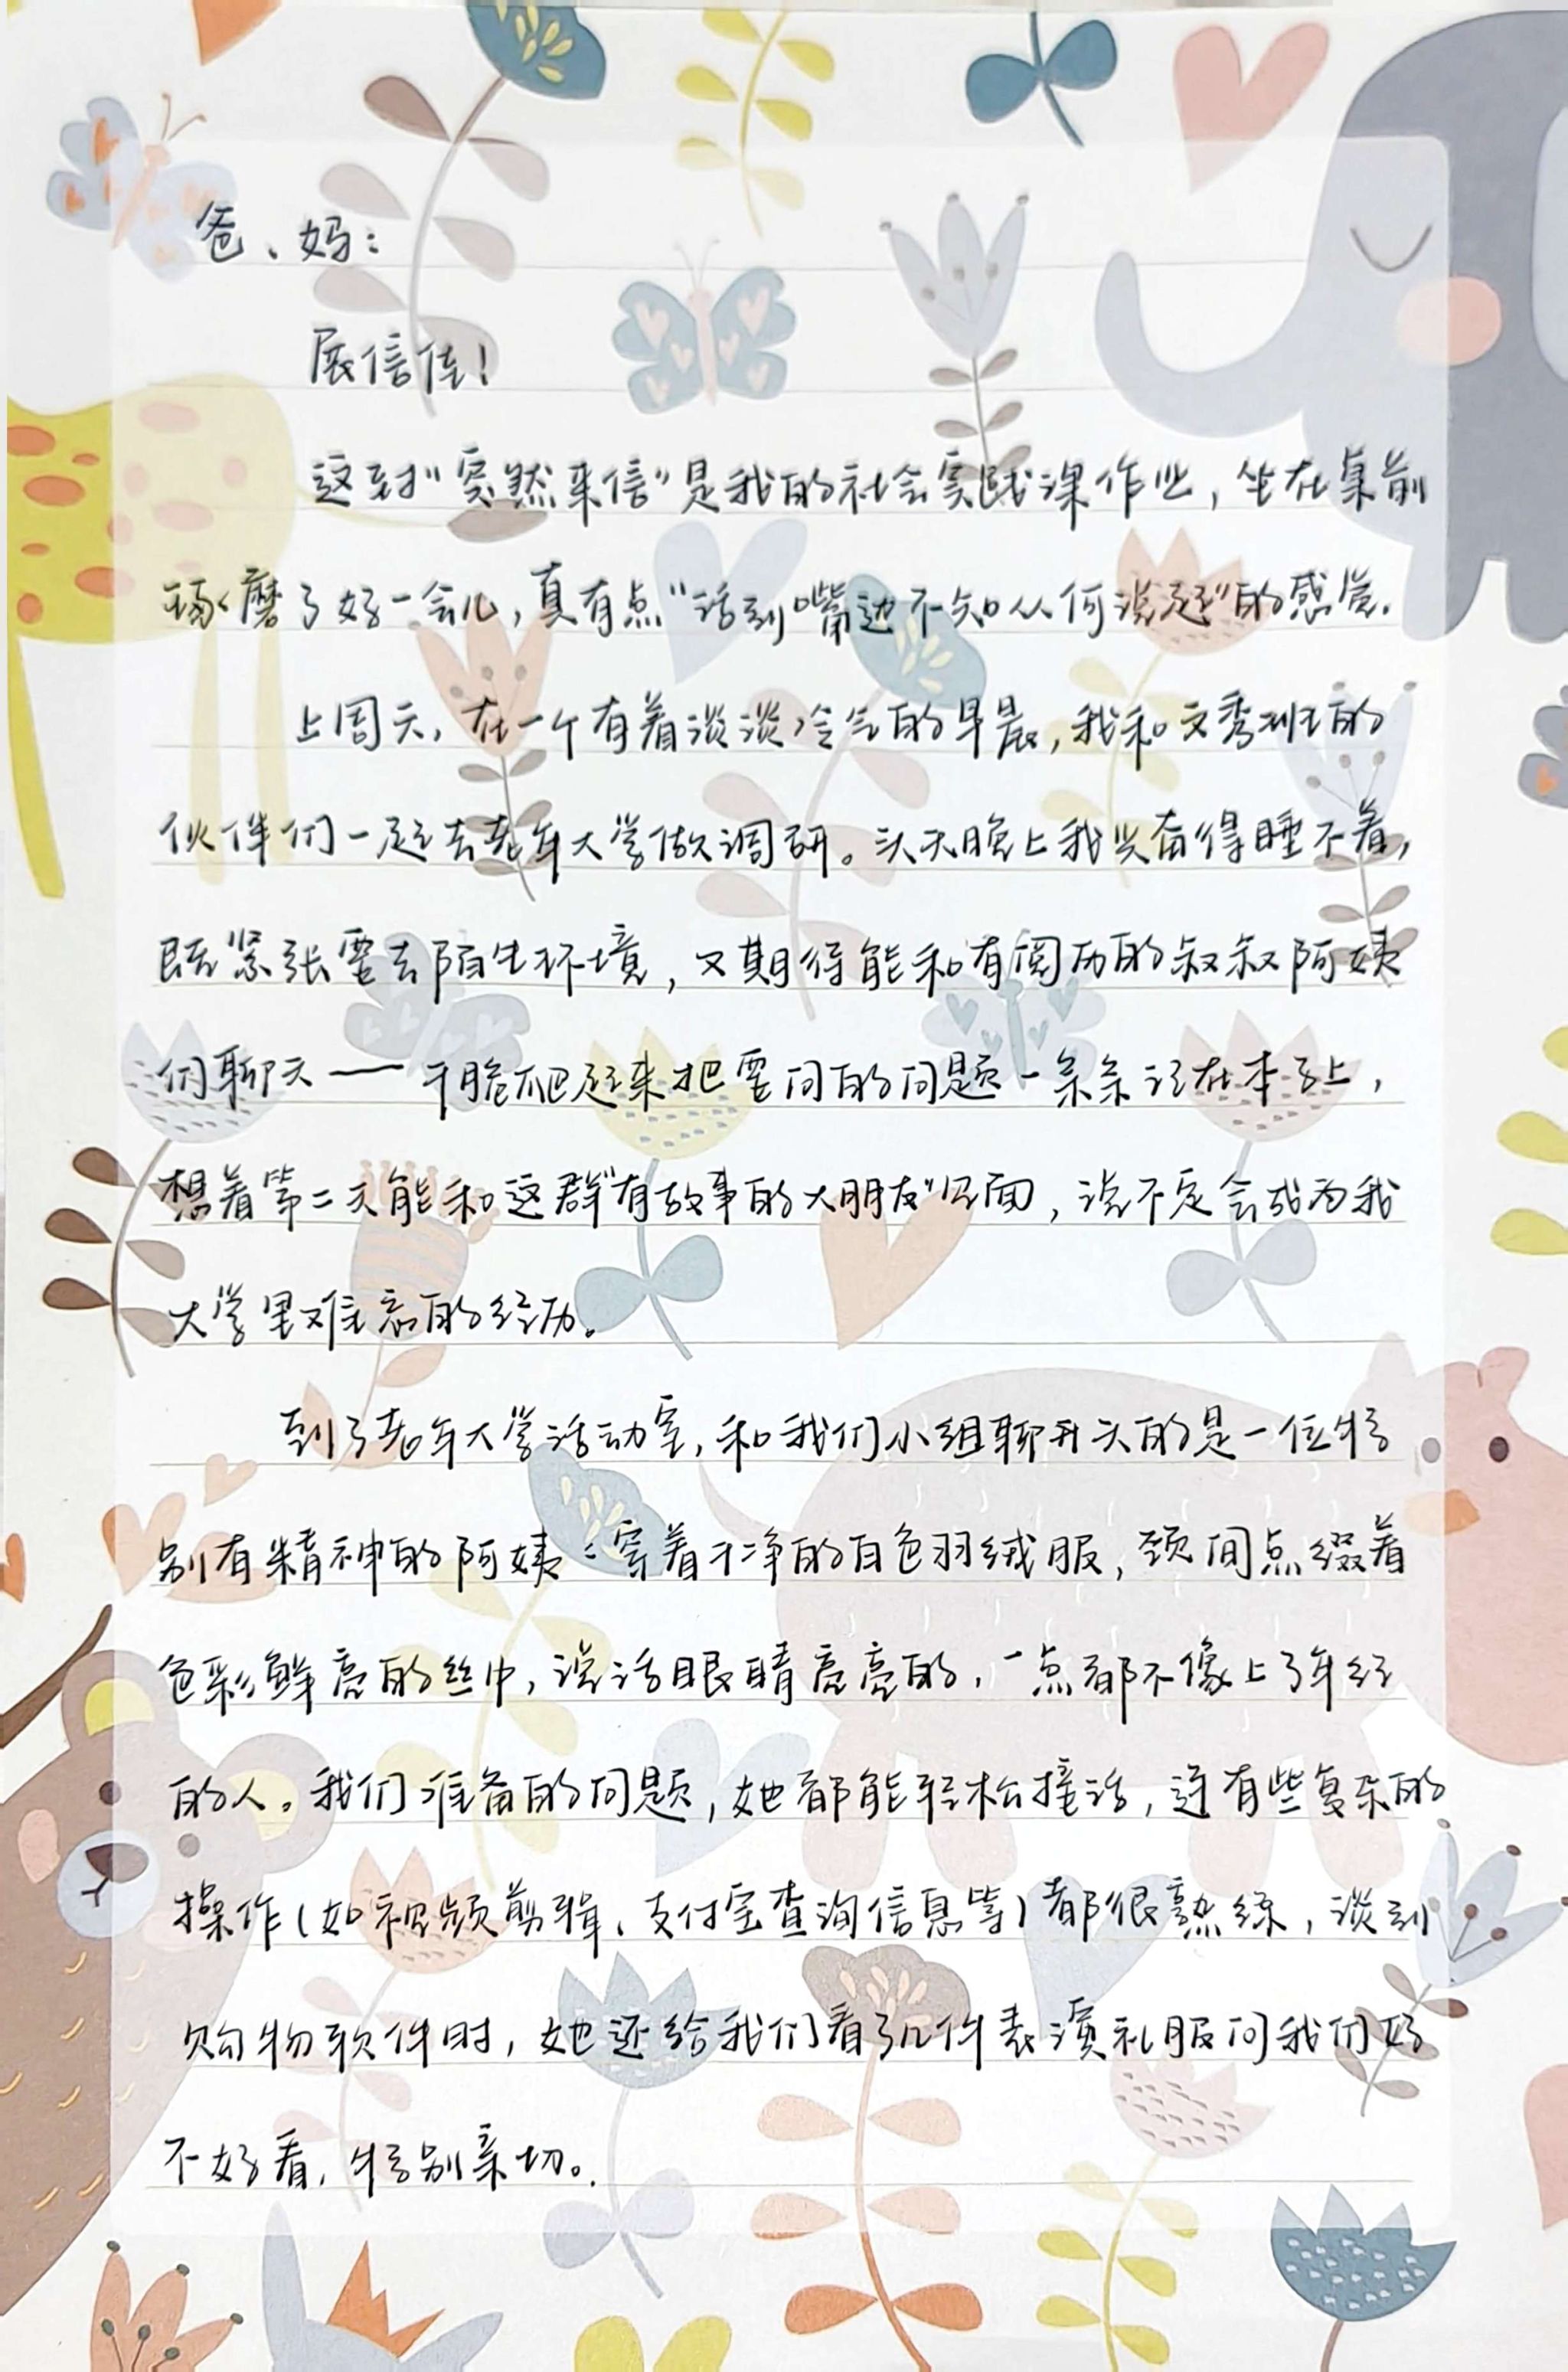 爸、妈：
展信佳！
这封“突然来信”是我的社会实践课作业，坐在桌前
琢磨了好一会儿，真有点“话到嘴边不知从何说起”的感觉．
上周天，在一个有着淡淡冷气的早晨，我和文秀班的
伙伴们一起去老年大学做调研。头天晚上我兴奋得睡不着，
既紧张要去陌生环境，又期待能和有阅历的叔叔阿姨
们聊天——干脆爬起来把要问的问题一条条记在本子上，
想着第二天能和这群“有故事的大朋友”见面，说不定会成为我
大学里难忘的经历。
到了老年大学活动室，和我们小组聊开头的是一位特
别有精神的阿姨：穿着干净的白色羽绒服，颈间点缀着
色彩鲜亮的丝巾，说话眼睛亮亮的，一点都不像上了年纪
的人。我们准备的问题，她都能轻松接话，连有些复杂的
操作（如视频剪辑、支付宝查询信息等）都很熟练，谈到
购物软件时，她还给我们看了几件表演礼服问我们好
不好看，特别亲切。